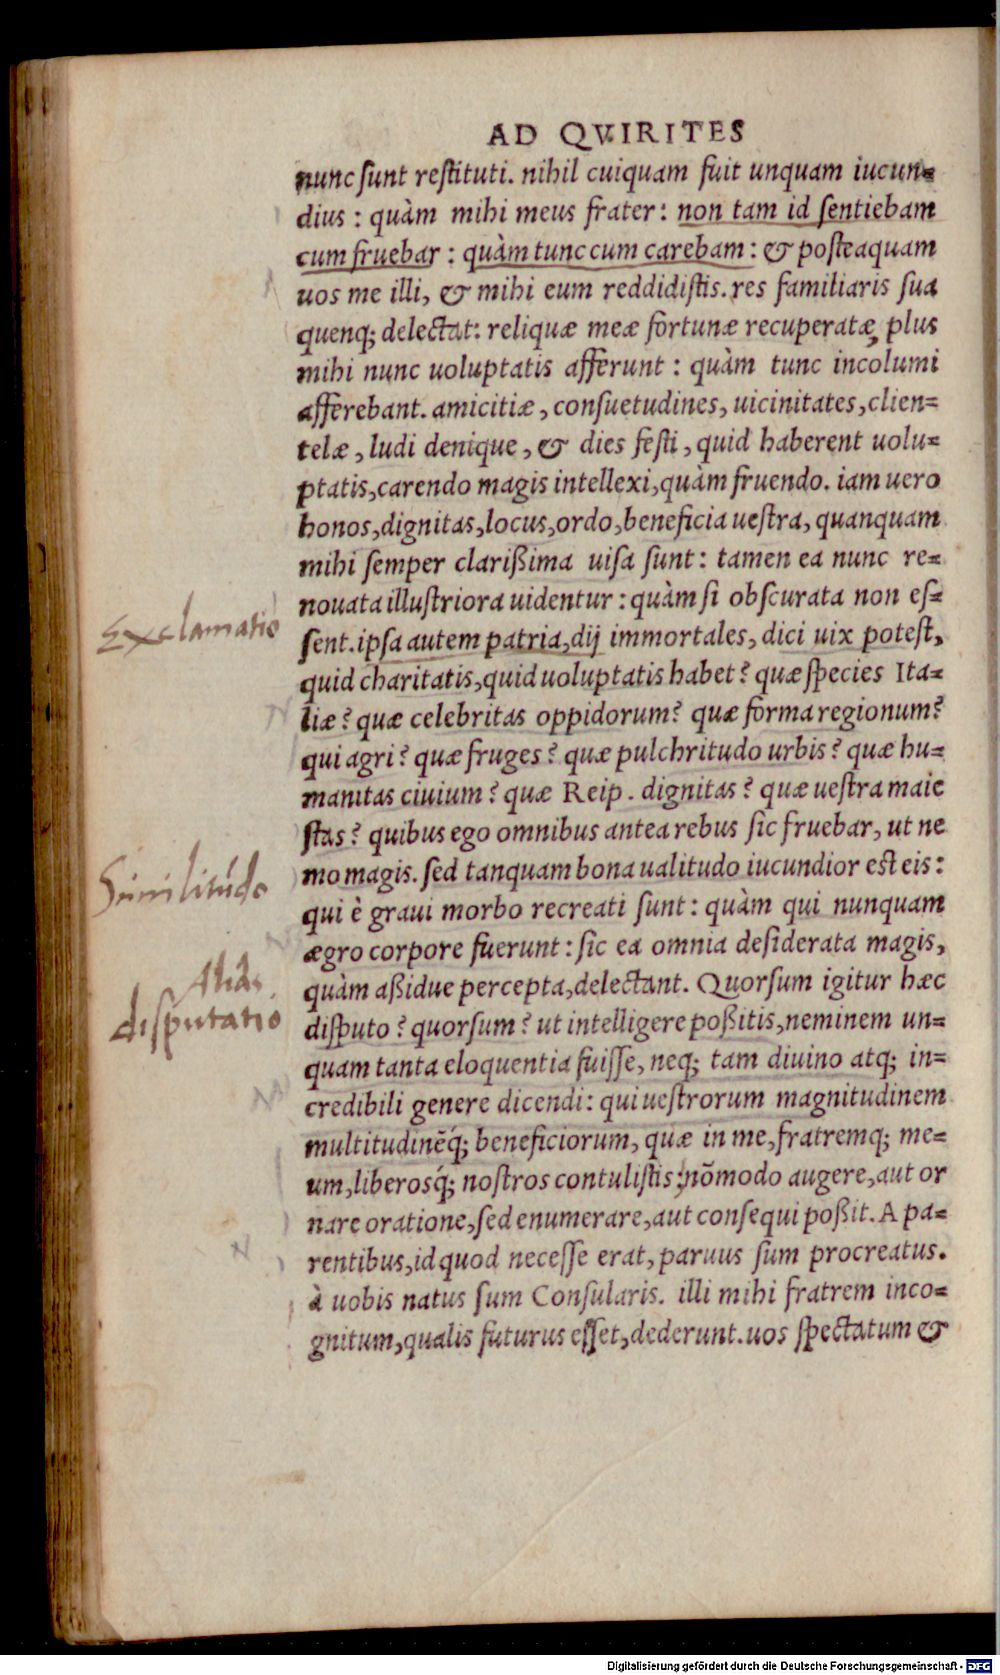 AD QVIRITES
nunc sunt restituti. nihil cuiquam fuit unquam iucun=
dius : quàm mihi meus frater : non tam id sentiebam
cum fruebar : quàm tunc cum carebam : & posteaquam
uos me illi, & mihi eum reddidistis. res familiaris sua
quenq; delectat: reliquæ meæ fortunæ recuperatæ, plus
mihi nunc uoluptatis afferunt : quàm tunc incolumi
afferebant. amicitiæ, consuetudines, uicinitates, clien=
telæ, ludi denique, & dies festi, quid haberent uolu=
ptatis, carendo magis intellexi, quàm fruendo. iam uero
honos, dignitas, locus, ordo, beneficia uestra, quanquam
mihi semper clarißima uisa sunt : tamen ea nunc re=
nouata illustriora uidentur : quàm si obscurata non es=
Exclamatio
sent. ipsa autem patria, dij immortales, dici uix potest,
quid charitatis, quid uoluptatis habet? quæ species Ita=
liæ? quæ celebritas oppidorum? quæ forma regionum?
qui agri? quæ fruges? quæ pulchritudo urbis? quæ hu=
manitas ciuium? quæ Reip. dignitas? quæ uestra maie
stas? quibus ego omnibus antea rebus sic fruebar, ut ne
mo magis. sed tanquam bona ualitudo iucundior est eis:
Similitudo
qui è graui morbo recreati sunt : quàm qui nunquam
ægro corpore fuerunt : sic ea omnia desiderata magis,
quàm aßidue percepta, delectant. Quorsum igitur hæc
Alias
disputatio
disputo? quorsum? ut intelligere poßitis, neminem un=
quam tanta eloquentia fuisse, neq; tam diuino atq; in=
credibili genere dicendi: qui uestrorum magnitudinem
multitudinẽq́; beneficiorum, quæ in me, fratremq; me=
um, liberosq́; nostros contulistis; nõmodo augere, aut or
nare oratione, sed enumerare, aut consequi poßit. A pa=
rentibus, id quod necesse erat, paruus sum procreatus.
à uobis natus sum Consularis. illi mihi fratrem inco=
gnitum, qualis futurus esset, dederunt. uos spectatum &
Digitalisierung gefördert durch die Deutsche Forschungsgemeinschaft - DFG